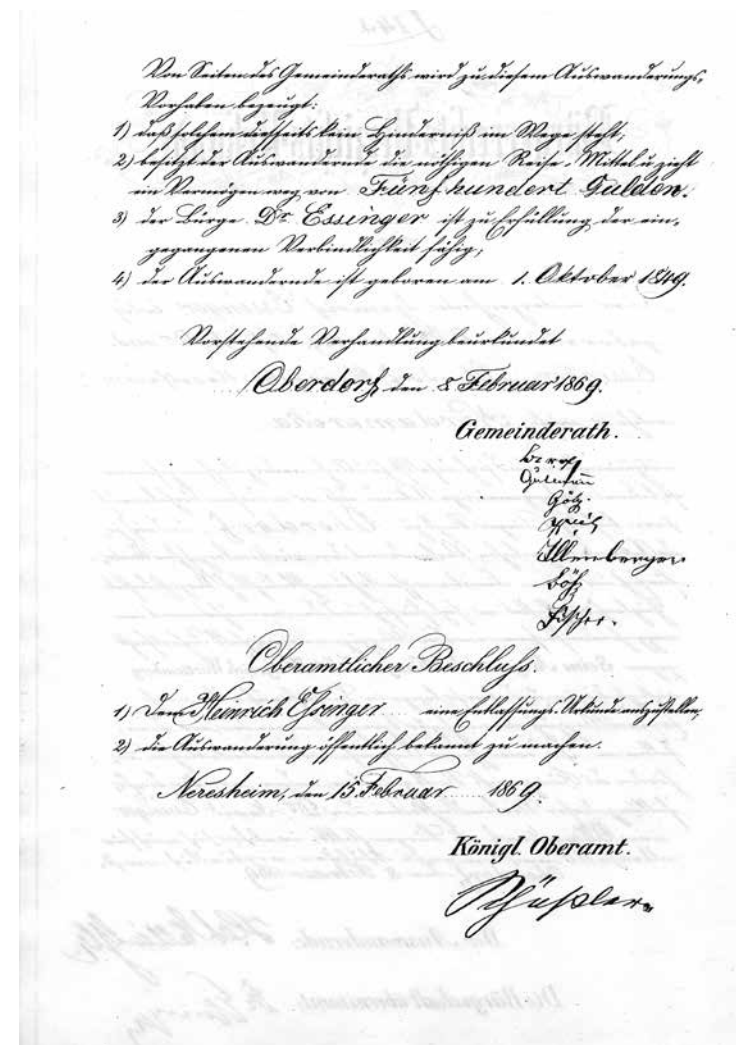 Von Seiten des Gemeinderaths wird zu diesem Auswanderungs-
Vorhaben bezeugt:
1) daß solchem diesseits kein Hinderniß im Wege steht,
2) besitzt der Auswandernde die nöthigen Reise-Mittel u. zieht
ein Vermögen weg von Fünfhundert Gulden.
3) der Bürge Dr. Essinger ist zu Erfüllung der ein-
gegangenen Verbindlichkeit fähig,
4) der Auswandernde ist geboren am 1. Oktober 1849.
Vorstehende Verhandlung beurkundet
Oberdorf, den 8 Februar 1869.
Gemeinderath.
Gutmann
Götz.
Illenberger
Fischer.
Oberamtlicher Beschluss.
1) Dem Heinrich Essinger eine Entlassungs-Urkunde auszustellen,
2) die Auswanderung öffentlich bekannt zu machen.
Neresheim, den 15. Februar 1869.
Königl. Oberamt.